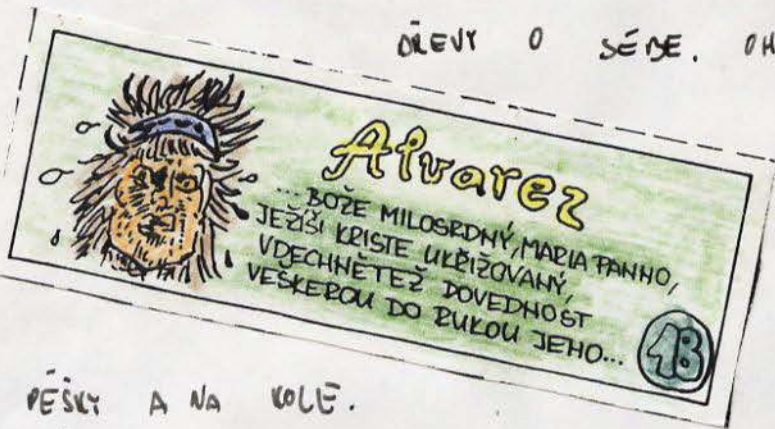 DŘEVY O SÉBE. OH
Alvarez
...BOŽE MILOSRDNÝ, MARIA PANNO,
JEŽÍŠI KRISTE UKŘIŽOVANÝ,
VDECHNĚTEŽ DOVEDNOST
VEŠKEROU DO RUKOU JEHO...
18
PĚŠKY A NA KOLE.